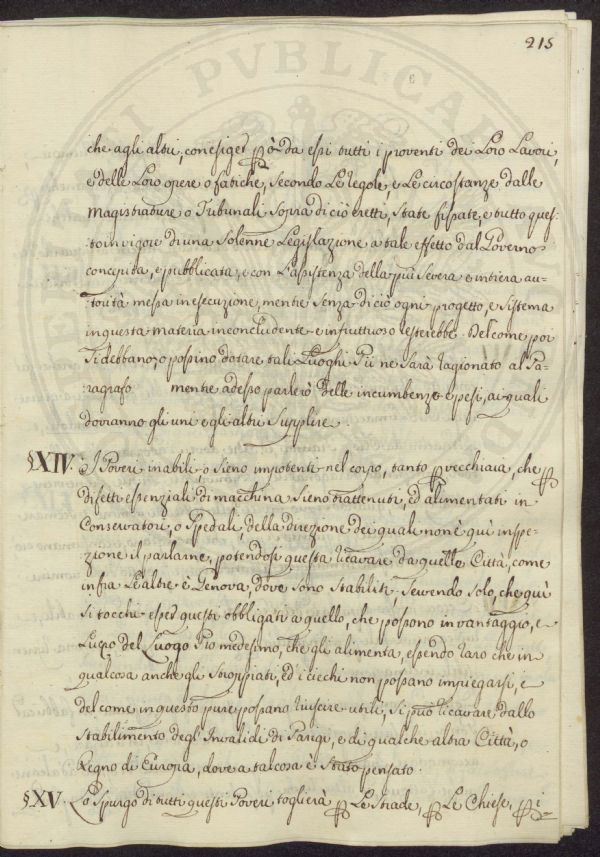 215
che agli altri, con esiger però da essi tutti i proventi dei Loro Lavori,
e delle Loro opere o fatiche, secondo Le regole, e Le circostanze dalle
Magistrature o Tribunali sopra di ciò eretti, State fissate, e tutto ques-
to in vigore di una Solenne Legislazione a tale effetto dal Governo
concepita, e pubblicata, e con L'assistenza della più Severa e intiera au-
torità messa in esecuzione, mentre Senza di ciò ogni progetto, e Sistema
in questa materia inconcludente e infruttuoso resterebbe. Del come poi
Si debbano, o possino dotare tali Luoghi Pii ne Sarà ragionato al Pa-
ragrafo mentre adesso parlerò delle incumbenze e pesi, ai quali
dovranno gli uni e gli altri Supplire.
§XIV. I Poveri inabili, o Sieno impotenti nel corpo, tanto per vecchiaia, che per
difetti essenziali di macchina Sieno trattenuti, ed alimentati in
Conservatori, o Spedali, della direzione dei quali non è quì inspe-
zione il parlarne, potendosi questa ricavare da quelle Città, come
infra Le altre è Genova, dove sono Stabiliti, Servendo Solo, che quì
Si tocchi esser questi obbligati a quello, che possono in vantaggio, e
Lucro del Luogo Pio medesimo, che gli alimenta, essendo raro che in
qualcosa anche gli Stroppiati, ed i ciechi non possano impiegarsi, e
del come in questo pure possano riuscire utili, Si può ricavare dallo
Stabilimento degl'Invalidi di Parigi, e di qualche altra Città, o
Regno di Europa, dove a tal cosa è Stato pensato.
§XV. Lo Spurgo di tutti questi Poveri toglierà per Le Strade, per Le Chiese, per i-